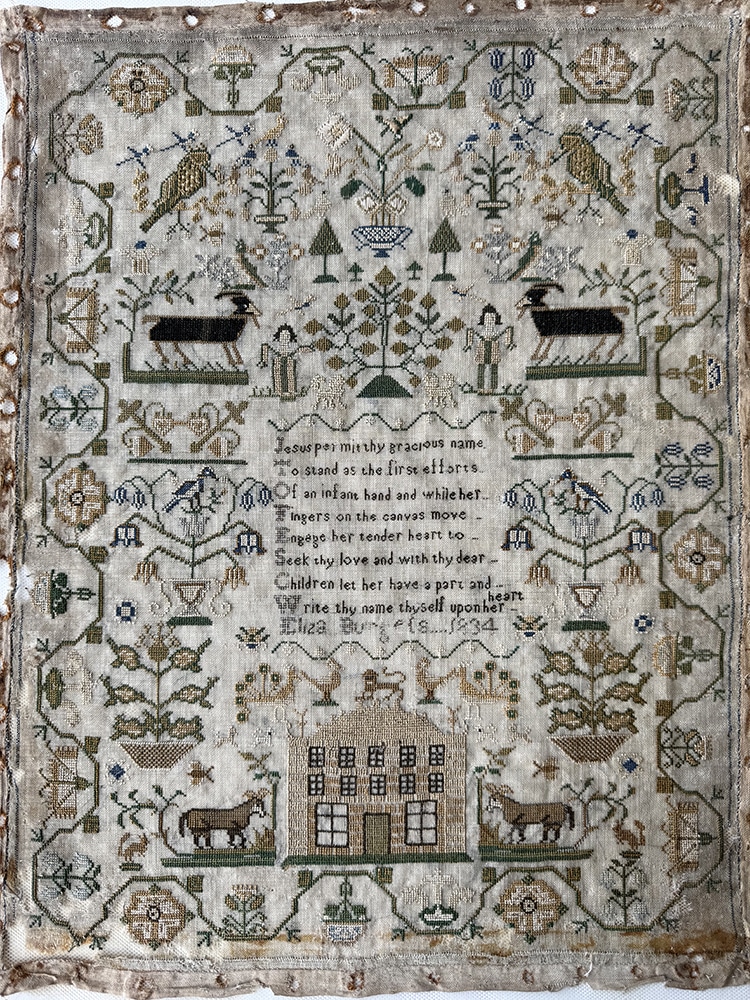 Jesus permit thy gracious name
To stand as the first efforts
Of an infant hand and while her
Fingers on the canvas move
Engage her tender heart to
Seek thy love and with thy dear
Children let her have a part and
Write thy name thyself upon her heart
Eliza Burgeſs....1834